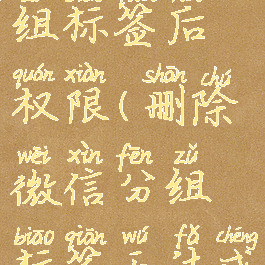 组标签后
quán xiàn shān chú
权限(删除
wēi xìn fēn zǔ
微信分组
biāo qiān wú fǎ chéng